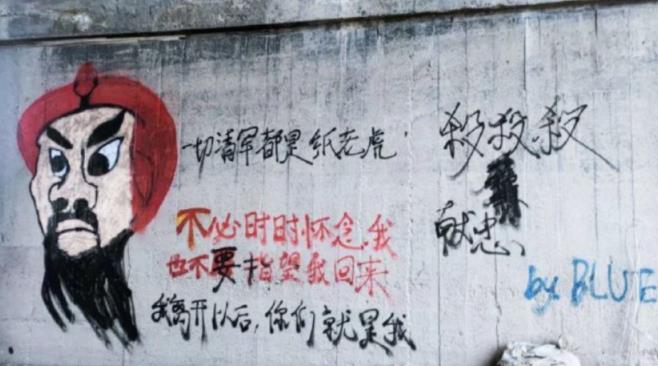 一切清军都是纸老虎
不必时时怀念我
也不要指望我回来
我离开以后，你们就是我
殺殺殺
献忠
by BLUE